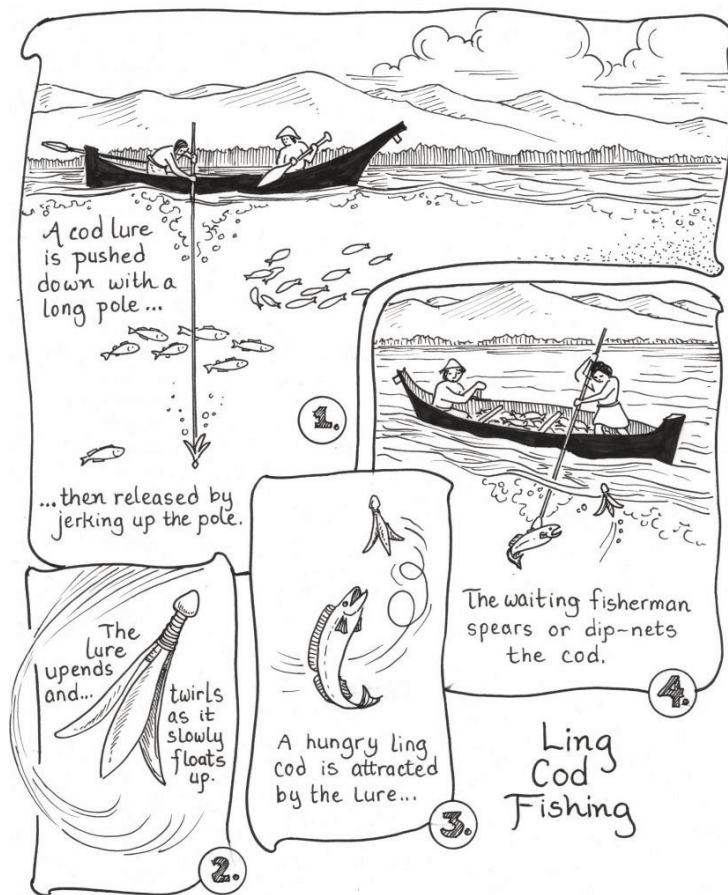 A cod lure
is pushed
down with a
long pole ...
...then released by
jerking up the pole.
1.
The
lure
upends
and...
twirls
as it
slowly
floats
up.
2.
A hungry ling
cod is attracted
by the lure...
3.
The waiting fisherman
spears or dip-nets
the cod.
4.
Ling
Cod
Fishing